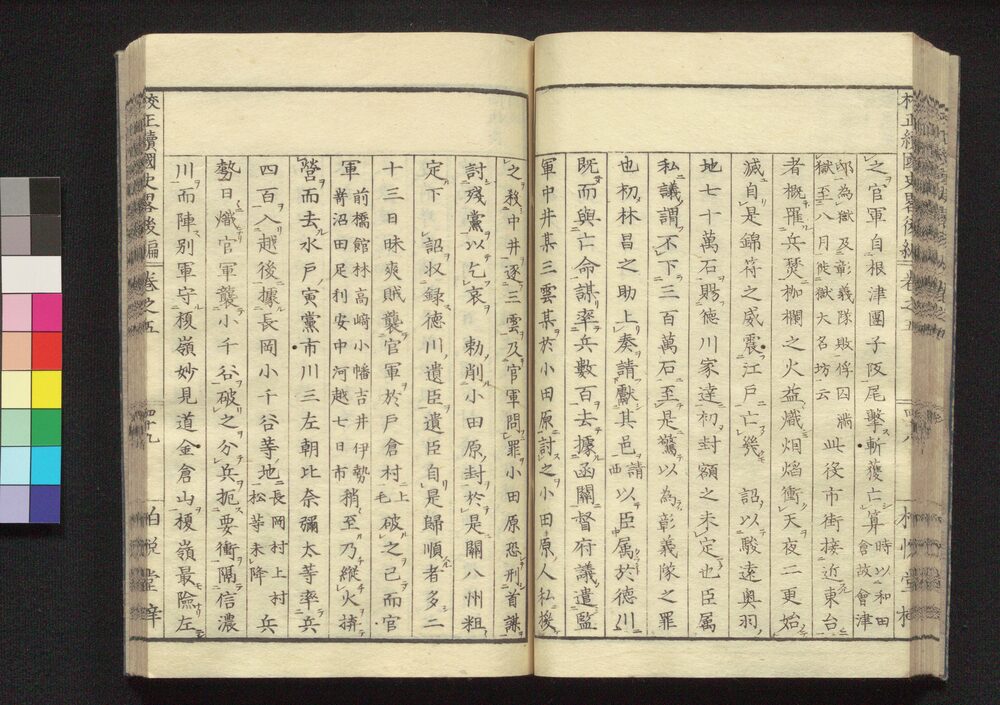 之官軍自根津團子阪尾擊斬獲亡算時以和田
會故會津
邸為獄及彰義隊敗俘囚滿
獄至八月徙獄大名坊云此役市街接近東台
者概罹兵燹枷欄之火益熾烟焰衝天夜二更始
滅自是錦符之威震江戸亡幾詔以駿遠奧羽
地七十萬石賜德川家達初封額之未定也臣属
私議謂不下三百萬石至是驚以為彰義隊之罪
也初林昌之助上奏請獻其邑請西以臣属於德川
既而與亡命謀率兵數百去據函關督府議遣監
軍中井某三雲某於小田原討之小田原人私援
之殺中井逐三雲及官軍問罪小田原恐刑首謀
討殘黨以乞哀勅削小田原封於是關八州粗
定下詔収録德川遺臣遺臣自是歸順者多二
十三日昧爽賊襲官軍於戸倉村上毛破之已而官
軍前橋館林高﨑小幡吉井伊勢
﨑沼田足利安中河越七日市稍至乃縱火擠
營而去水戸寅黨市川三左朝比奈彌太等率兵
四百入越後據長岡小千谷等地長岡村上村
松等未降兵
勢日熾官軍襲小千谷破之分兵扼要衝隔信濃
川而陣别軍守榎嶺妙見道金倉山榎嶺最險左
校正續國史畧後編
卷之五
四十九
柏悅堂梓
卷之五
四十八